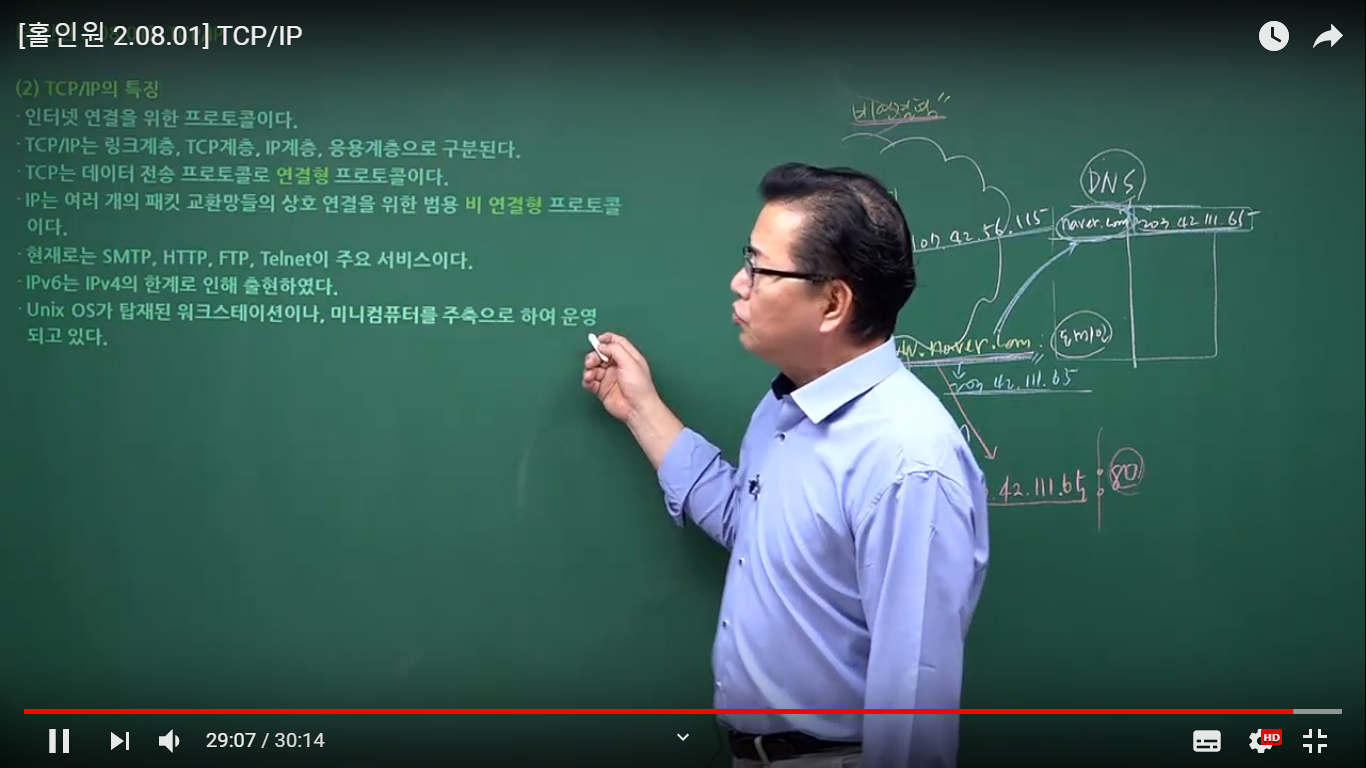 [홀인원 2.08.01] TCP/IP
(2) TCP/IP의 특징
· 인터넷 연결을 위한 프로토콜이다.
· TCP/IP는 링크계층, TCP계층, IP계층, 응용계층으로 구분된다.
· TCP는 데이터 전송 프로토콜로 연결형 프로토콜이다.
· IP는 여러 개의 패킷 교환망들의 상호 연결을 위한 범용 비 연결형 프로토콜
이다.
· 현재로는 SMTP, HTTP, FTP, Telnet이 주요 서비스이다.
· IPv6는 IPv4의 한계로 인해 출현하였다.
· Unix OS가 탑재된 워크스테이션이나, 미니컴퓨터를 주축으로 하여 운영
되고 있다.
비연결형"
DNS
107.42.56.115
naver.com 203.42.111.65
도메인
w.naver.com
42.111.65
.42.111.65 : 80
29:07 / 30:14
HD